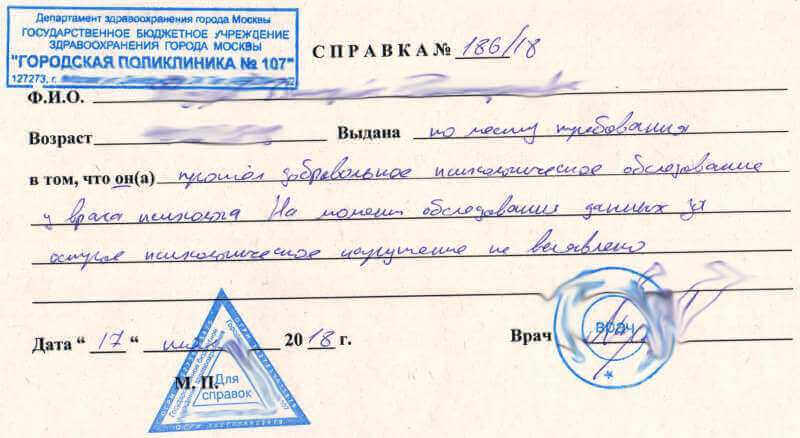 Департамент здравоохранения города Москвы
ГОСУДАРСТВЕННОЕ БЮДЖЕТНОЕ УЧРЕЖДЕНИЕ
ЗДРАВООХРАНЕНИЯ ГОРОДА МОСКВЫ
"ГОРОДСКАЯ ПОЛИКЛИНИКА № 107"
127273, г.
СПРАВКА № 186/18
Ф.И.О.
Возраст Выдана по месту требования
в том, что он(а) прошёл добровольное психологическое обследование
у врача психолога На момент обследования данных за
острое психологическое нарушение не выявлено
Дата " 17 " 2018 г. Врач
врач
М. П.
Для
справок
107